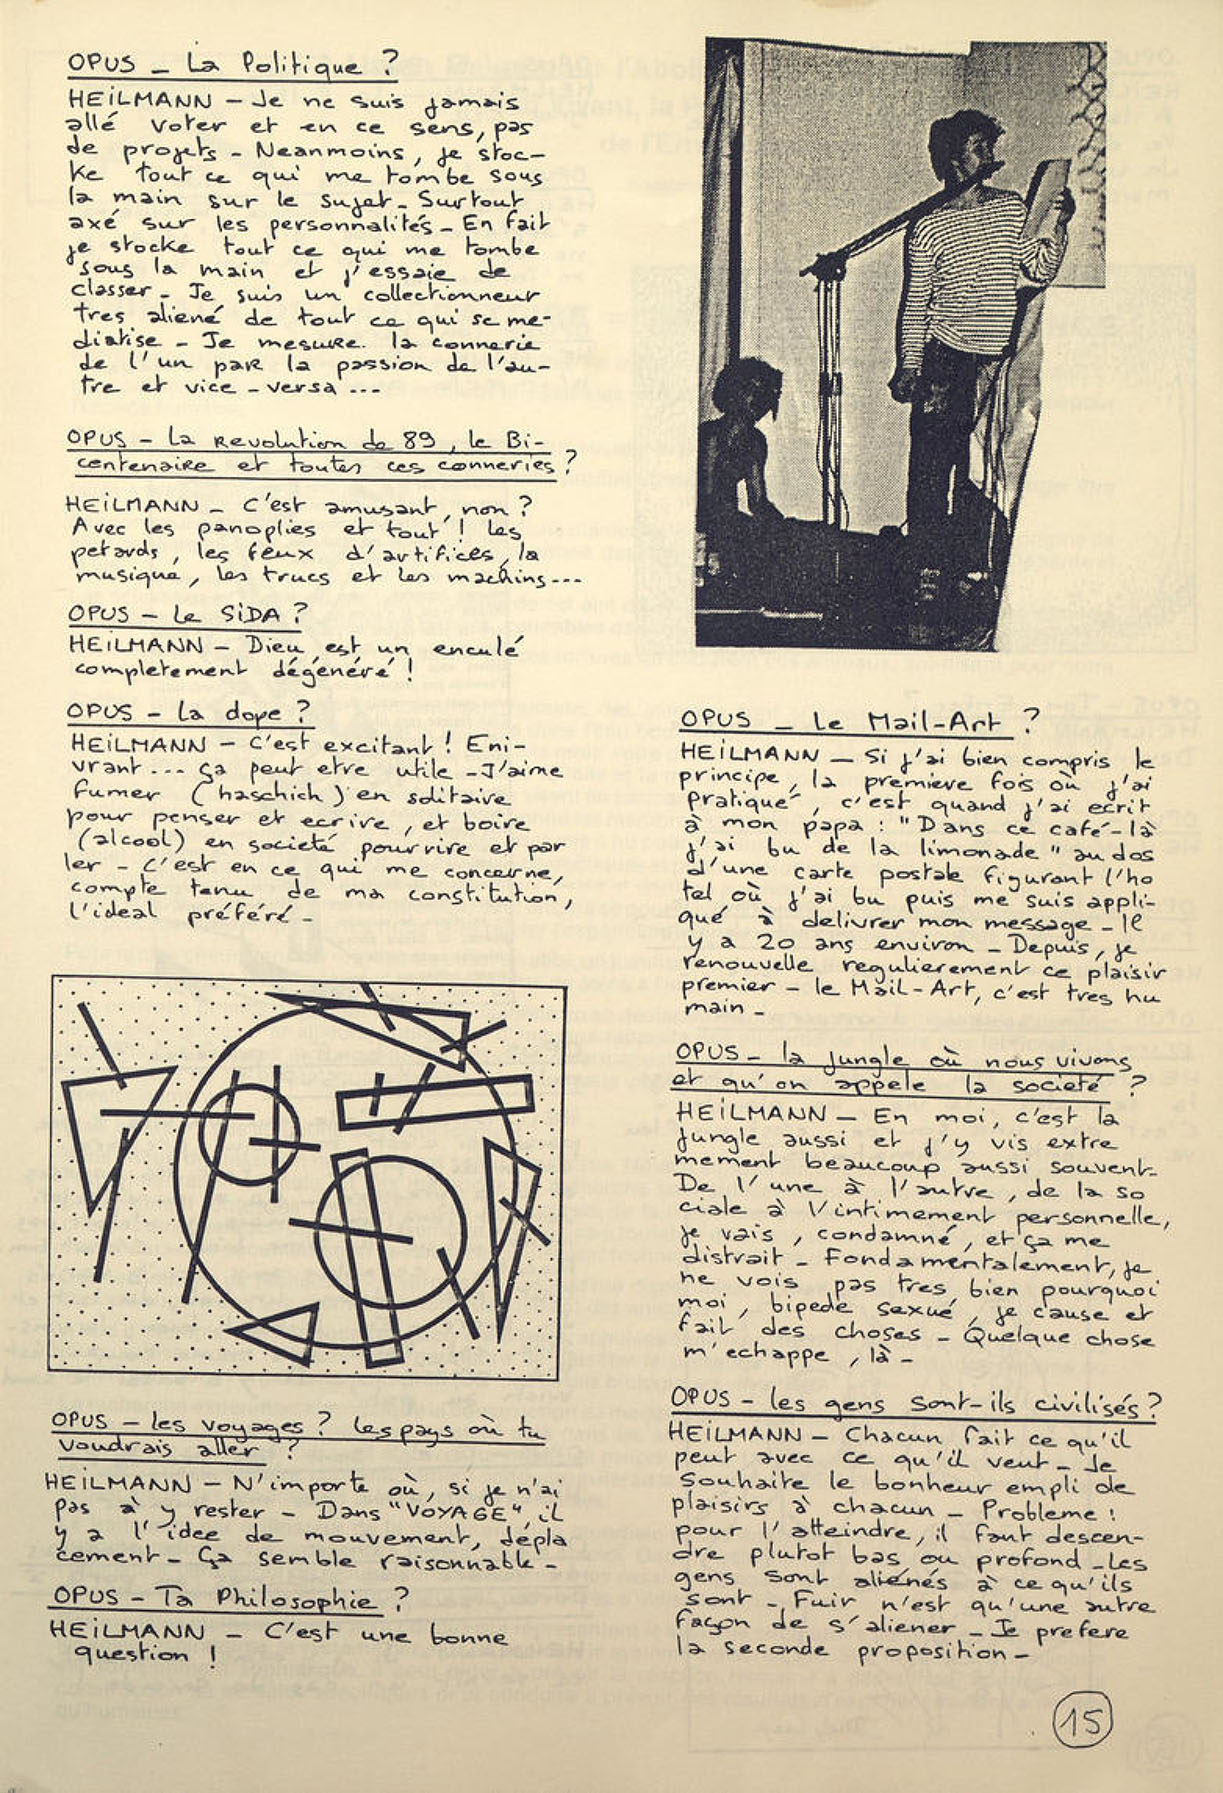 OPUS - La Politique ?
HEILMANN - Je ne suis jamais
allé voter et en ce sens, pas
de projets - Neanmoins, je stoc-
ke tout ce qui me tombe sous
la main sur le sujet - Surtout
axé sur les personnalités - En fait
je stocke tout ce qui me tombe
sous la main et j'essaie de
classer - Je suis un collectionneur
tres aliené de tout ce qui se me-
diatise - Je mesure la connerie
de l'un par la passion de l'au-
tre et vice-versa ...
OPUS - La revolution de 89, le Bi-
centenaire et toutes ces conneries ?
HEILMANN - C'est amusant, non ?
Avec les panoplies et tout ! Les
petards, les feux d'artifices, la
musique, les trucs et les machins ...
OPUS - Le SiDA ?
HEILMANN - Dieu est un enculé
completement dégénéré !
OPUS - La dope ?
HEILMANN - C'est excitant ! Eni-
vrant ... ça peut etre utile - J'aime
fumer (haschich) en solitaire
pour penser et ecrire, et boire
(alcool) en societé pour rire et par
ler - C'est en ce qui me concerne,
compte tenu de ma constitution,
l'ideal préféré -
OPUS - les voyages ? les pays où tu
voudrais aller ?
HEILMANN - N'importe où, si je n'ai
pas à y rester - Dans "VOYAGE", il
y a l'idee de mouvement, dépla
cement - Ça semble raisonnable -
OPUS - Ta Philosophie ?
HEILMANN - C'est une bonne
question !
OPUS - Le Mail-Art ?
HEILMANN - Si j'ai bien compris le
principe, la premiere fois où j'ai
pratiqué, c'est quand j'ai ecrit
à mon papa : "Dans ce café-là
j'ai bu de la limonade" au dos
d'une carte postale figurant l'ho
tel où j'ai bu puis me suis appli-
qué à delivrer mon message - Il
y a 20 ans environ - Depuis, je
renouvelle regulierement ce plaisir
premier - le Mail-Art, c'est tres hu
main -
OPUS - la jungle où nous vivons
et qu'on appele la societé ?
HEILMANN - En moi, c'est la
jungle aussi et j'y vis extre
mement beaucoup aussi souvent -
De l'une à l'autre, de la so
ciale à l'intimement personnelle,
je vais, condamné, et ça me
distrait - Fondamentalement, je
ne vois pas tres bien pourquoi
moi, bipede sexué, je cause et
fait des choses - Quelque chose
m'echappe, là -
OPUS - les gens sont-ils civilisés ?
HEILMANN - Chacun fait ce qu'il
peut avec ce qu'il veut - Je
souhaite le bonheur empli de
plaisirs à chacun - Probleme :
pour l'atteindre, il faut descen-
dre plutot bas ou profond - Les
gens sont aliénés à ce qu'ils
sont - Fuir n'est qu'une autre
façon de s'aliener - Je prefere
la seconde proposition -
15